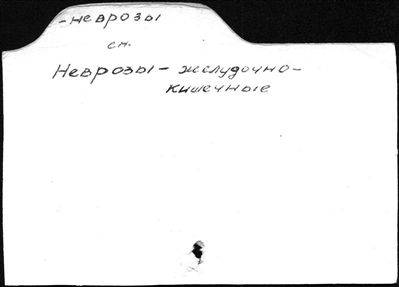 -неврозы
см.
Неврозы - желудочно-
кишечные